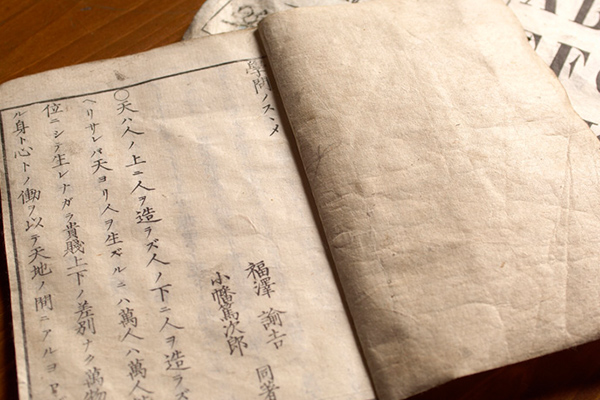 學問ノスヽメ
福澤諭吉
小幡篤次郎
同著
〇天ハ人ノ上ニ人ヲ造ラズ人ノ下ニ人ヲ造ラズ
ヘリサレバ天ヨリ人ヲ生ズルニハ萬人ハ萬人
位ニシテ生レナガラ貴賤上下ノ差別ナク萬物
ル身ト心トノ働ヲ以テ天地ノ間ニアルヨ